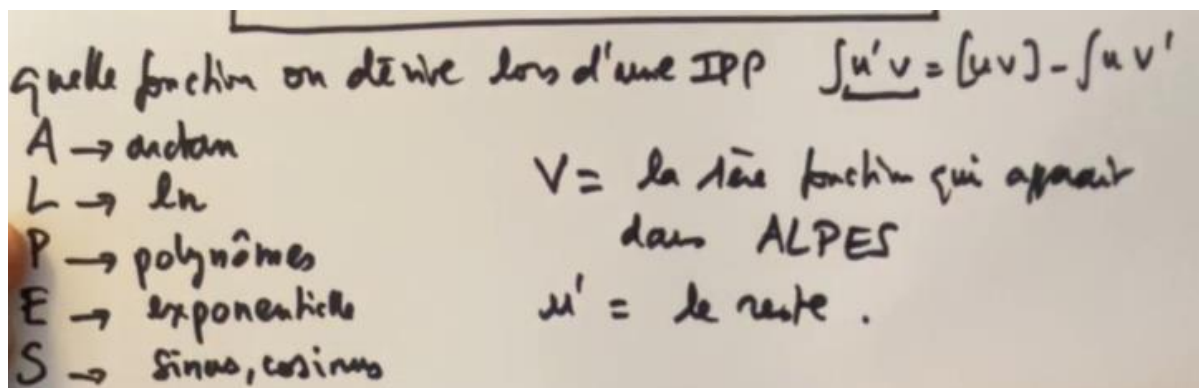 quelle fonction on dérive lors d'une IPP ∫u'v = [uv] - ∫uv'
A → arctan
L → ln
P → polynômes
E → exponentielle
S → sinus, cosinus
V = la 1ère fonction qui apparait
dans ALPES
u' = le reste.